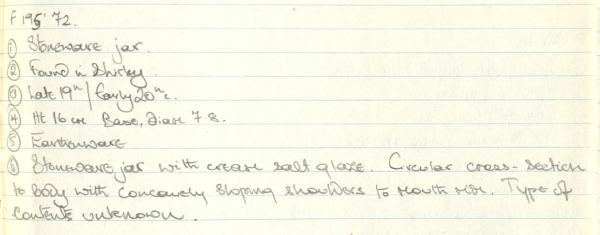 F 195' 72.
① Stoneware jar.
② Found in Shirley.
③ Late 19ᵗʰ / Early 20ᵗʰ c.
④ Ht 16 cm Base, diam 7·8.
⑤ Earthenware
⑥ Stoneware jar with cream salt glaze. Circular cross-section
to body with concavely sloping shoulders to mouth rim. Type of
contents unknown.